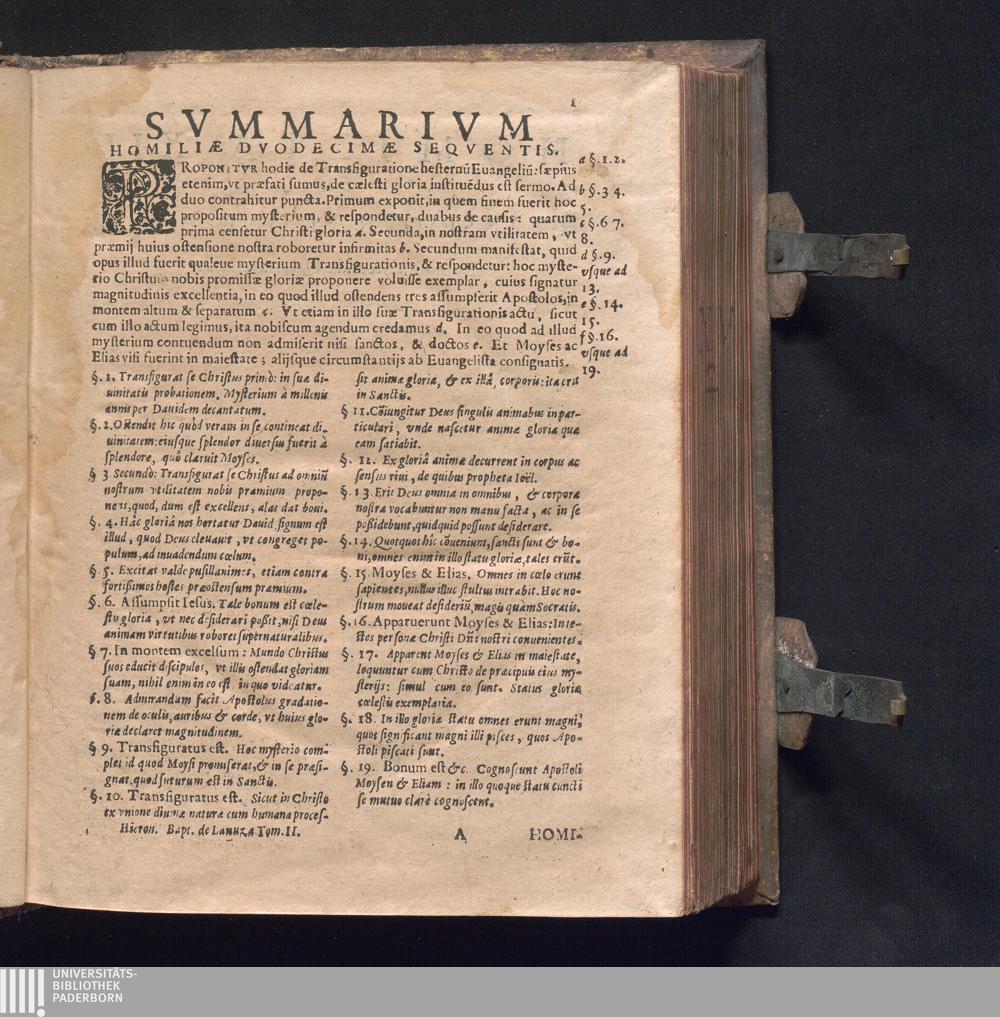 1
SVMMARIVM
HOMILIÆ DVODECIMÆ SEQVENTIS.
PROPONITVR hodie de Transfiguratione hesternũ Euangeliũ: sæpius
etenim, vt præfati sumus, de cælesti gloria instituẽdus est sermo. Ad
duo contrahitur puncta. Primum exponit, in quem finem fuerit hoc
propositum mysterium, & respondetur, duabus de causis: quarum
prima censetur Christi gloria a. Secunda, in nostram vtilitatem, vt
præmij huius ostensione nostra roboretur infirmitas b. Secundum manifestat, quid
opus illud fuerit qualeue mysterium Transfigurationis, & respondetur: hoc myste-
rio Christum nobis promissæ gloriæ proponere voluisse exemplar, cuius signatur
magnitudinis excellentia, in eo quod illud ostendens tres assumpserit Apostolos, in
montem altum & separatum c. Vt etiam in illo suæ Transfigurationis actu, sicut
cum illo actum legimus, ita nobiscum agendum credamus d. In eo quod ad illud
mysterium contuendum non admiserit nisi sanctos, & doctos e. Et Moyses ac
Elias visi fuerint in maiestate; alijsque circumstantijs ab Euangelista consignatis.
a §. 1. 2.
b §. 3 4.
5.
c §. 6 7.
8.
d §. 9.
vsque ad
13.
e §. 14.
15.
f §. 16.
vsque ad
19.
§. 1. Transfigurat se Christus primò: in suæ di-
uinitatis probationem. Mysterium à millenis
annis per Dauidem decantatum.
§. 2. Ostendit hic quòd veram in se contineat di-
uinitatem: eiusque splendor diuersus fuerit à
splendore, quo claruit Moyses.
§ 3 Secundò: Transfigurat se Christus ad omniũ
nostrum vtilitatem nobis præmium propo-
nens, quod, dum est excellens, alas dat boui.
§. 4. Hâc gloriâ nos hortatur Dauid signum est
illud, quod Deus eleuauit, vt congreget po-
pulum, ad inuadendum cœlum.
§. 5. Excitat valde pusillanimes, etiam contra
fortissimos hostes præostensum præmium.
§. 6. Assumpsit Iesus. Tale bonum est cœle-
stis gloria, vt nec desiderari possit, nisi Deus
animam virtutibus roboret supernaturalibus.
§ 7. In montem excelsum: Mundo Christus
suos educit discipulos, vt illis ostendat gloriam
suam, nihil enim in eo est in quo videatur.
§. 8. Admirandam facit Apostolus gradatio-
nem de oculis, auribus & corde, vt huius glo-
riæ declaret magnitudinem.
§ 9. Transfiguratus est. Hoc mysterio com-
plet id quod Moysi promiserat, & in se præsi-
gnat, quod futurum est in Sanctis.
§. 10. Transfiguratus est. Sicut in Christo
ex vnione diuinæ naturæ cum humana proces-
sit animæ gloria, & ex illâ, corporis: ita erit
in Sanctis.
§ 11. Cõiungitur Deus singulis animabus in par-
ticulari, vnde nascetur animæ gloria quæ
eam satiabit.
§. 12. Ex gloriâ animæ decurrent in corpus ac
sensus riui, de quibus propheta Ioël.
§. 13. Erit Deus omnia in omnibus, & corpora
nostra vocabuntur non manu facta, ac in se
possidebunt, quidquid possunt desiderare.
§. 14. Quotquot hîc cõueniunt, sancti sunt & bo-
ni, omnes enim in illo statu gloriæ, tales erũt.
§. 15. Moyses & Elias. Omnes in cœlo erunt
sapientes, nullus illuc stultus intrabit. Hoc no-
strum moueat desideriũ, magis quàm Socratis.
§. 16. Apparuerunt Moyses & Elias: Inte-
stes personæ Christi Dñi nostri conuenientes.
§. 17. Apparent Moyses & Elias in maiestate,
loquuntur cum Christo de præcipuis eius my-
sterijs: simul cum eo sunt. Status gloriæ
cœlestis exemplaria.
§. 18. In illo gloriæ statu omnes erunt magni,
quos significant magni illi pisces, quos Apo-
stoli piscati sunt.
§. 19. Bonum est &c. Cognoscunt Apostoli
Moysen & Eliam: in illo quoque statu cuncti
se mutuo clarè cognoscent.
Hieron. Bapt. de Lanuza Tom. II.
A
HOMI-
UNIVERSITÄTS-
BIBLIOTHEK
PADERBORN